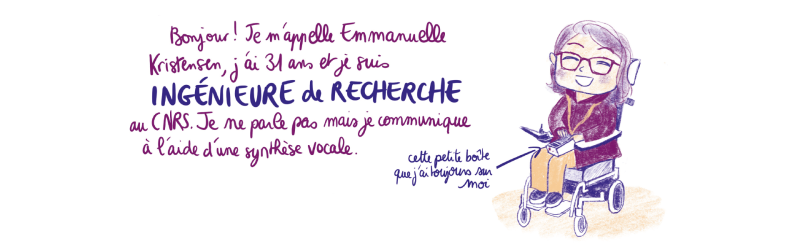 Bonjour! Je m'appelle Emmanuelle
Kristensen, j'ai 31 ans et je suis
INGÉNIEURE de RECHERCHE
au CNRS. Je ne parle pas mais je communique
à l'aide d'une synthèse vocale.
cette petite boîte
que j'ai toujours sur
moi